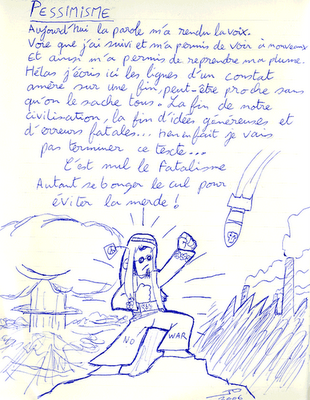 PESSIMISME
Aujourd'hui la parole m'a rendu la voix.
Vore que j'ai suivi et m'a permis de voir à nouveaux
Et ainsi m'a permis de reprendre ma plume.
Hélas j'écris ici les lignes d'un constat
amère sur une fin, peut-être proche sans
qu'on le sache tous. La fin de notre
civilisation, la fin d'idées généreuses et
d'erreurs fatales... en fait je vais
pas terminer ce texte...
C'est nul le fatalisme
Autant se bouger le cul pour
éviter la merde !
NO WAR
2006